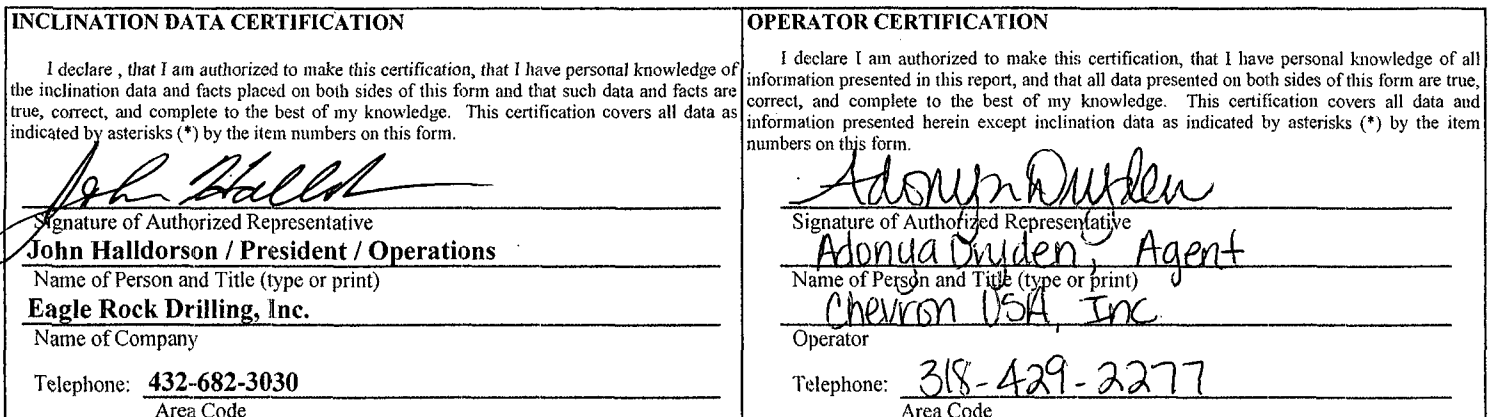 INCLINATION DATA CERTIFICATION
I declare , that I am authorized to make this certification, that I have personal knowledge of
the inclination data and facts placed on both sides of this form and that such data and facts are
true, correct, and complete to the best of my knowledge. This certification covers all data as
indicated by asterisks (*) by the item numbers on this form.
John Halldorson
Signature of Authorized Representative
John Halldorson / President / Operations
Name of Person and Title (type or print)
Eagle Rock Drilling, Inc.
Name of Company
Telephone: 432-682-3030
Area Code
OPERATOR CERTIFICATION
I declare I am authorized to make this certification, that I have personal knowledge of all
information presented in this report, and that all data presented on both sides of this form are true,
correct, and complete to the best of my knowledge. This certification covers all data and
information presented herein except inclination data as indicated by asterisks (*) by the item
numbers on this form.
Adonya Dryden
Signature of Authorized Representative
Adonya Dryden, Agent
Name of Person and Title (type or print)
Chevron USA, Inc
Operator
Telephone: 318-429-2277
Area Code